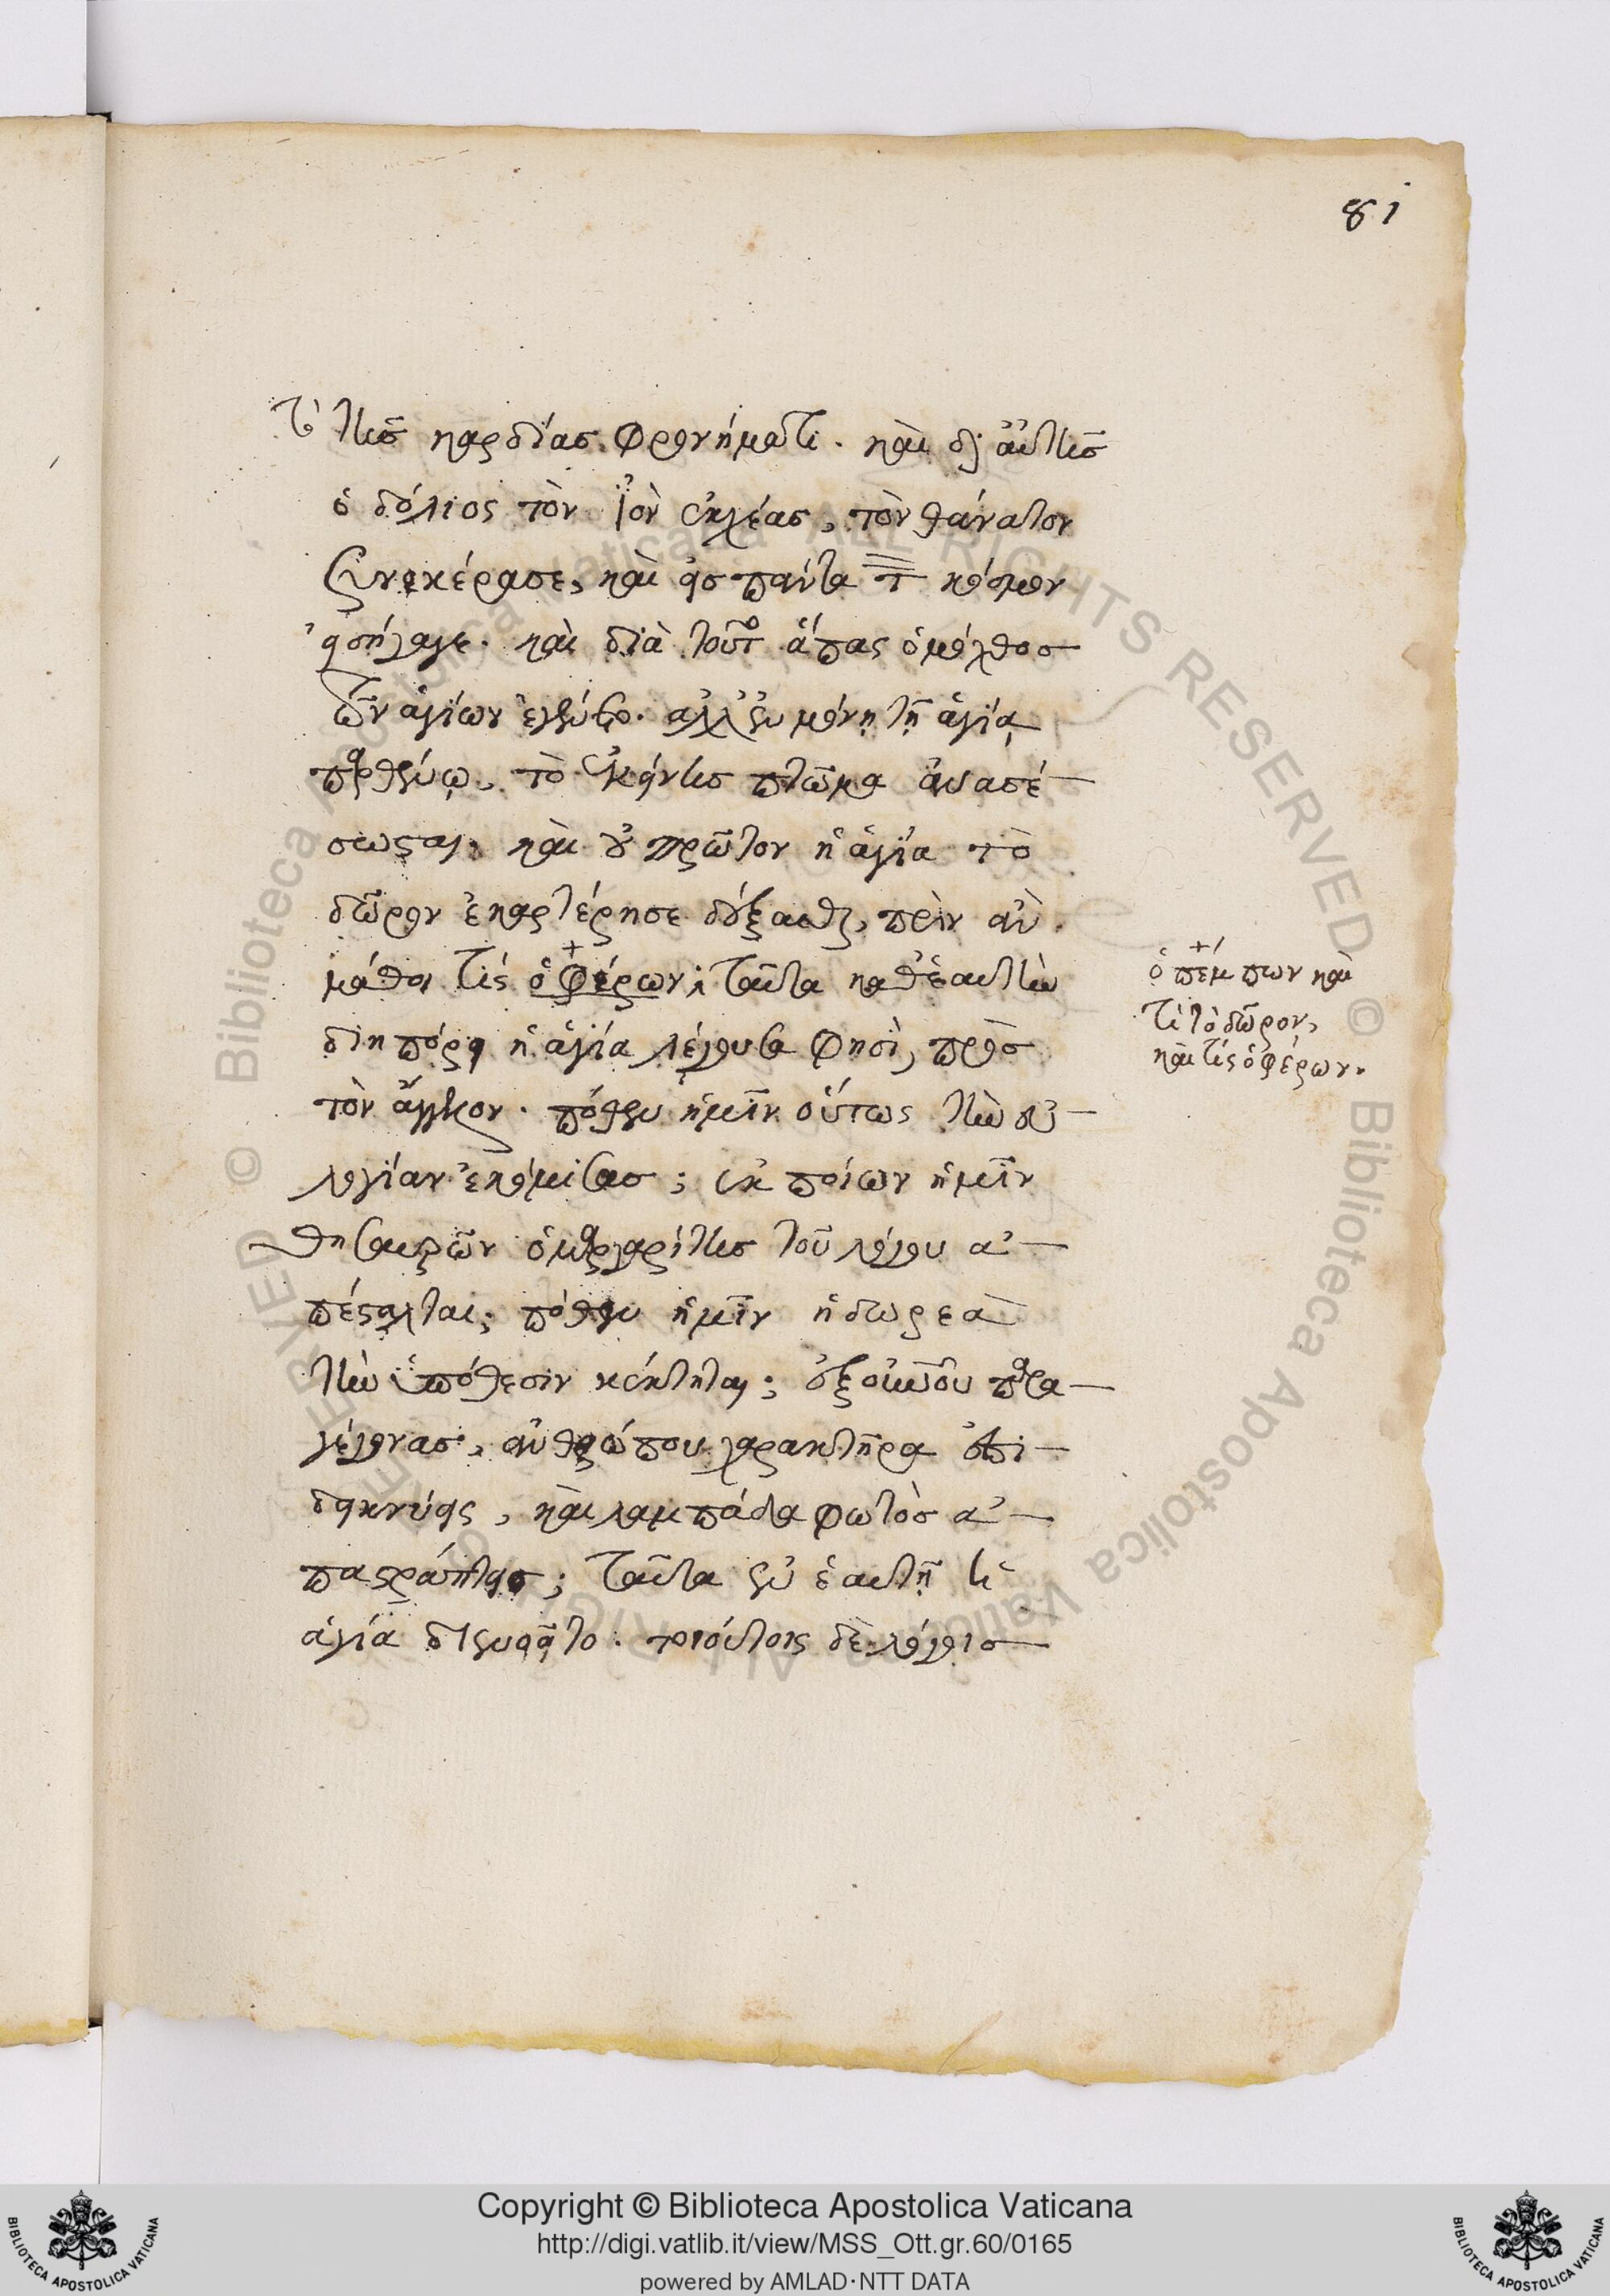 81
τῷ τῆς καρδίας φρονήματι. καὶ δι' αὐτῆς
ὁ δόλιος τὸν ἰὸν ἐκχέας, τὸν θάνατον
συνεκέρασε, καὶ εἰς πάντα τ κόσμον
εἰσήγαγε. καὶ διὰ τοῦτο ἅπας ὁ μόχθος
τῶν ἁγίων ἐγένετο. ἀλλ' ἐν μόνῃ τῇ ἁγίᾳ
παρθένῳ, τὸ ἐκείνης πτῶμα ἀνασέ-
σωσται. καὶ οὐ πρῶτον ἡ ἁγία τὸ
δῶρον ἐκαρτέρησε δέξασθαι, πρὶν ἂν
μάθοι τίς ὁ φέρων; ταῦτα καθ' ἑαυτὴν
διηπόρει ἡ ἁγία λέγουσα φησὶ, πρὸς
τὸν ἄγγελον. πόθεν ἡμῖν οὕτως τὴν εὐ-
λογίαν ἐκόμισας; ἐκ ποίων ἡμῖν
θησαυρῶν ὁ μαργαρίτης τοῦ λόγου ἀ-
πέσταλται; πόθεν ἡμῖν ἡ δωρεὰ
τὴν ὑπόθεσιν κέκτηται; ἐξ οὐρανοῦ παρα-
γέγονας, ἀνθρώπου χαρακτῆρα ἐπι-
δεικνύεις, καὶ λαμπάδα φωτὸς ἀ-
παστράπτεις; ταῦτα ἐν ἑαυτῇ ἡ
ἁγία διενοεῖτο. τοιούτοις δὲ λόγοις
ὁ πέμπων καὶ
τί τὸ δῶρον,
καὶ τίς ὁ φέρων.
Copyright © Biblioteca Apostolica Vaticana
http://digi.vatlib.it/view/MSS_Ott.gr.60/0165
powered by AMLAD·NTT DATA
BIBLIOTECA APOSTOLICA VATICANA
BIBLIOTECA APOSTOLICA VATICANA
© Biblioteca Apostolica Vaticana ALL RIGHTS RESERVED © Biblioteca Apostolica Vaticana ALL RIGHTS RESERVED